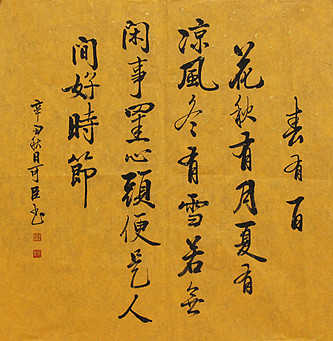 春有百
花秋有月夏有
凉風冬有雪若無
閑事罣心頭便是人
間好時節
辛丑秋日可臣书